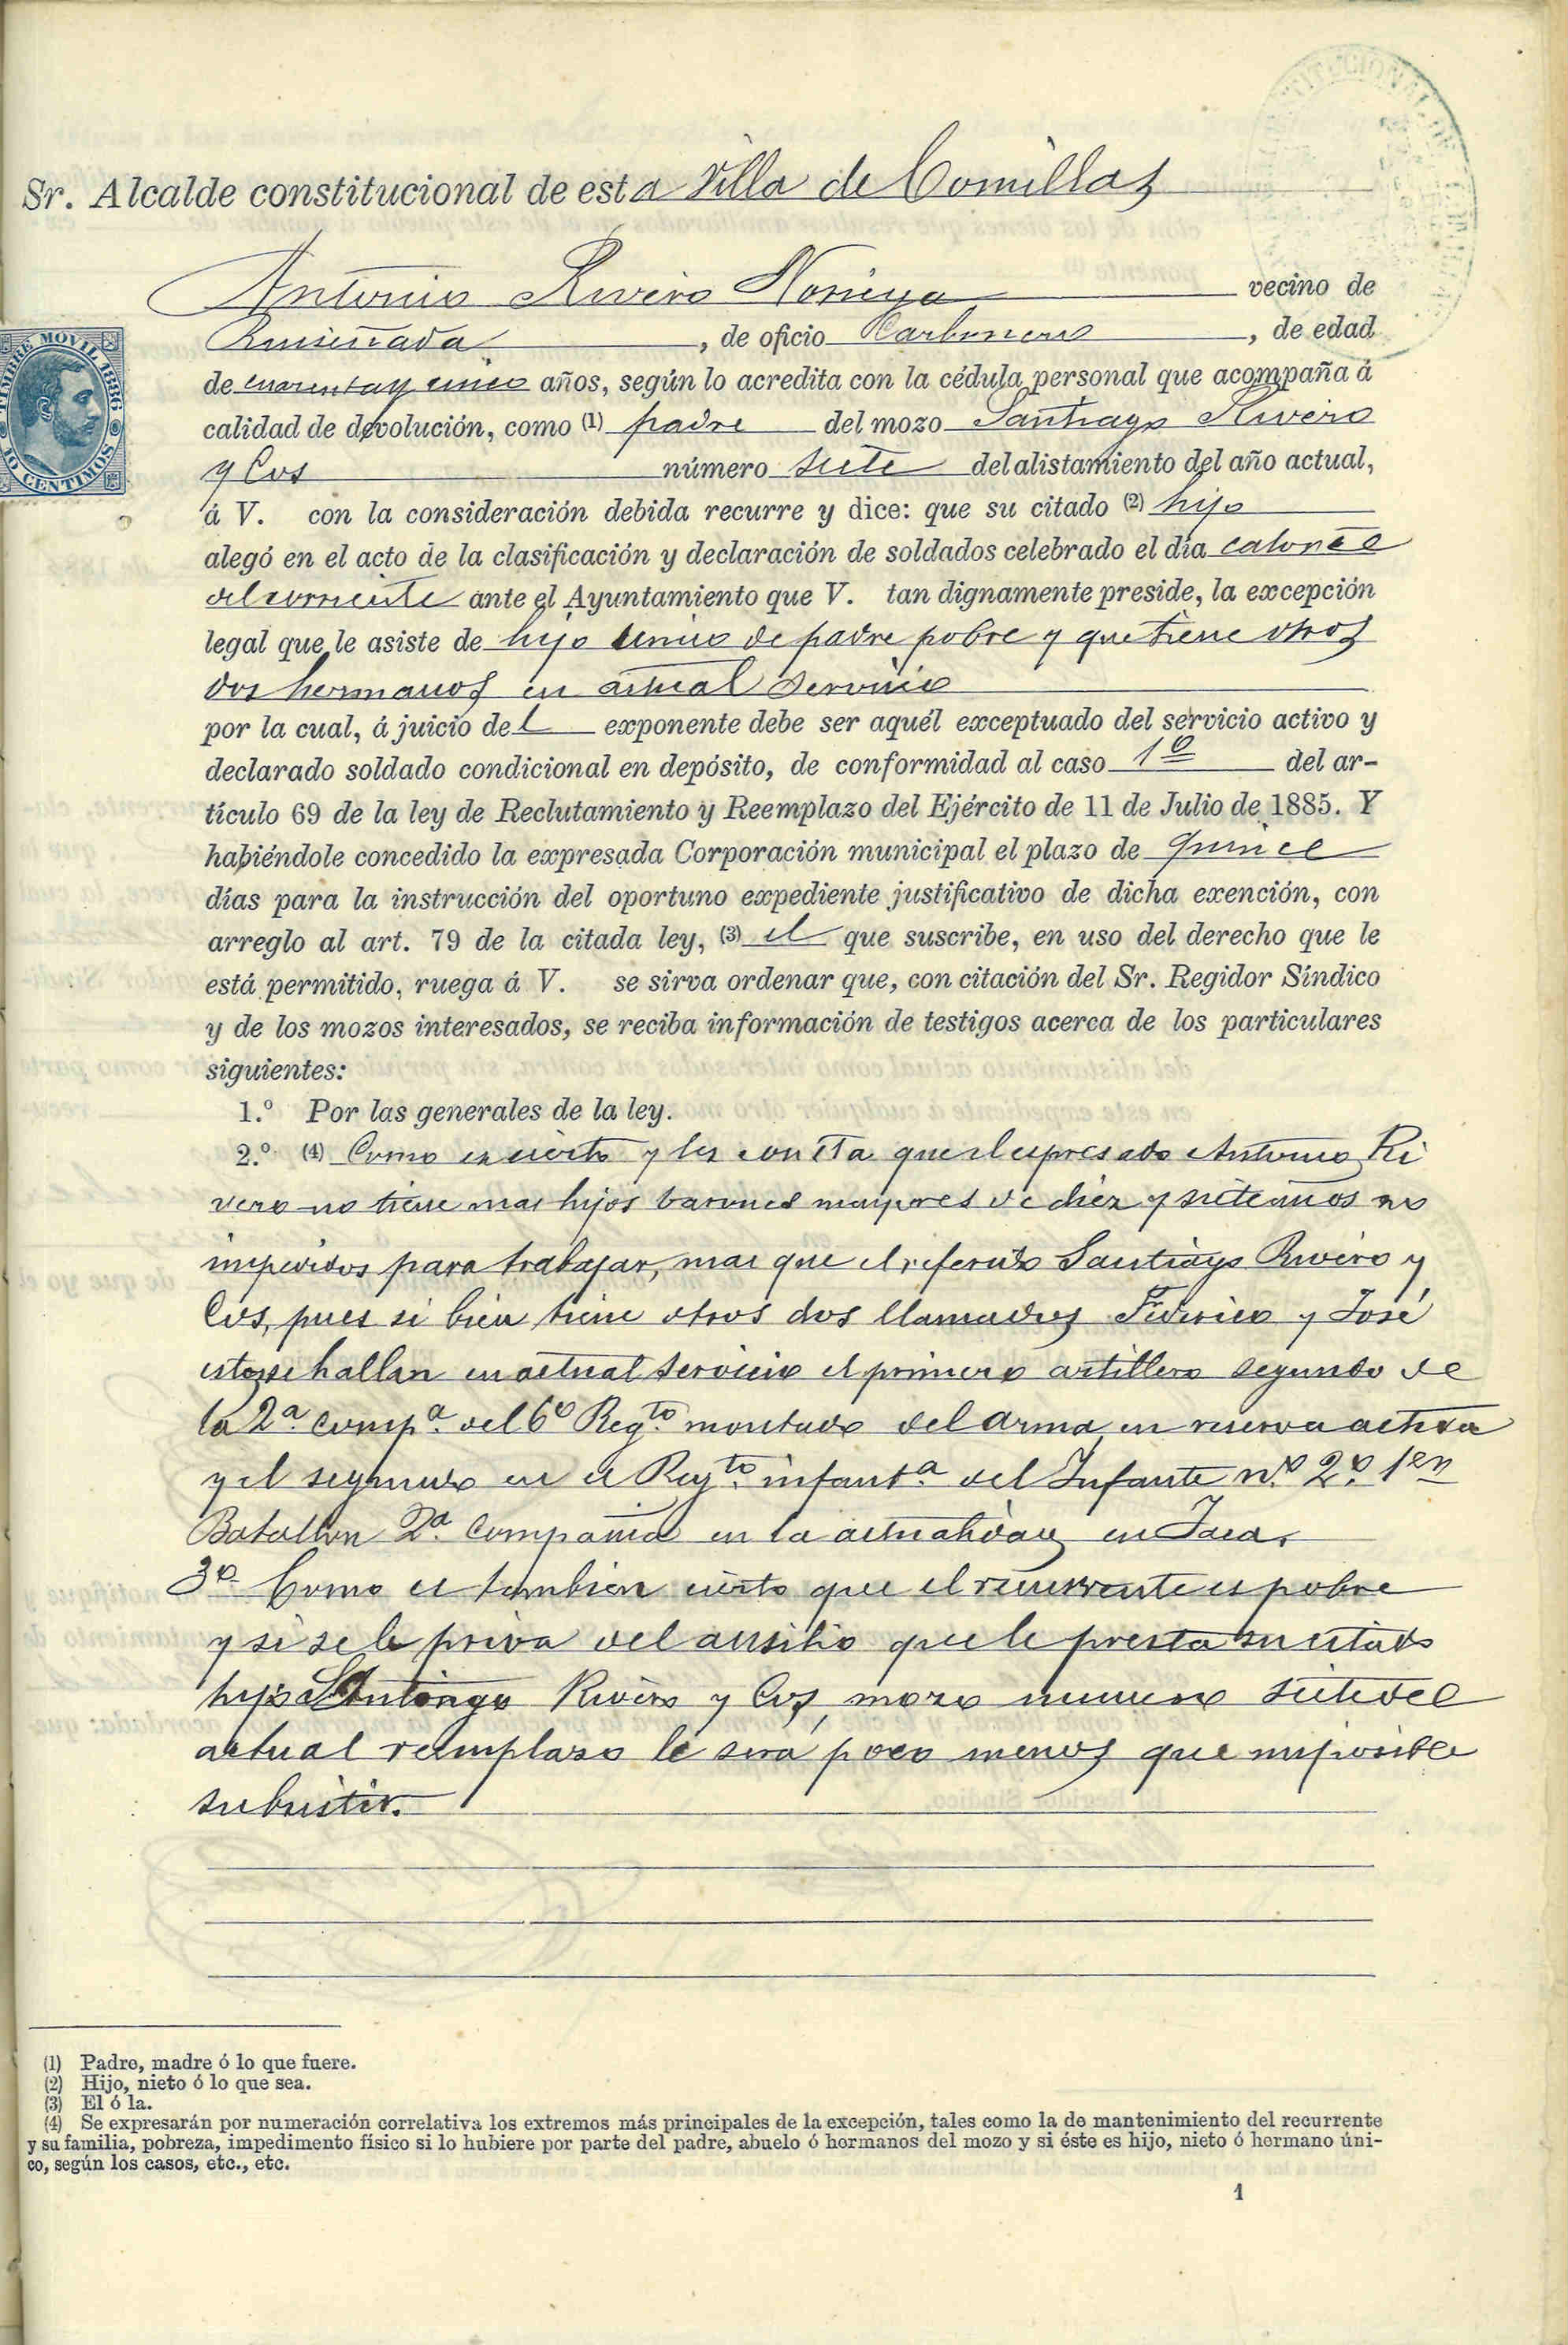 Sr. Alcalde constitucional de esta Villa de Comillas
Antonio Rivero Noriega vecino de
Ruiseñada, de oficio Carbonero, de edad
TIMBRE MOVIL 1886
10 CENTIMOS
de cuarenta y cinco años, según lo acredita con la cédula personal que acompaña á
calidad de devolución, como (1) padre del mozo Santiago Rivero
y Cos número siete del alistamiento del año actual,
á V. con la consideración debida recurre y dice: que su citado (2) hijo
alegó en el acto de la clasificación y declaración de soldados celebrado el día catorce
del corriente ante el Ayuntamiento que V. tan dignamente preside, la excepción
legal que le asiste de hijo unico de padre pobre y que tiene otros
dos hermanos en actual servicio
por la cual, á juicio del exponente debe ser aquél exceptuado del servicio activo y
declarado soldado condicional en depósito, de conformidad al caso 1º del ar-
tículo 69 de la ley de Reclutamiento y Reemplazo del Ejército de 11 de Julio de 1885. Y
habiéndole concedido la expresada Corporación municipal el plazo de quince
días para la instrucción del oportuno expediente justificativo de dicha exención, con
arreglo al art. 79 de la citada ley, (3) el que suscribe, en uso del derecho que le
está permitido, ruega á V. se sirva ordenar que, con citación del Sr. Regidor Síndico
y de los mozos interesados, se reciba información de testigos acerca de los particulares
siguientes:
1.º Por las generales de la ley.
2.º (4) Como es cierto y les consta que el espresado Antonio Ri
vero no tiene mas hijos barones mayores de diez y siete años no
impedidos para trabajar, mas que el referido Santiago Rivero y
Cos, pues si bien tiene otros dos llamados Federico y José
estos se hallan en actual servicio el primero artillero segundo de
la 2ª compª del 6º Regto montado del arma, en reserva activa
y el segundo en el Regto infantª del Infante nº 2º 1er
Batallon 2ª Compañia en la actualidad en Jaca.
3º Como es tambien cierto que el recurrente es pobre
y si se le priva del ausilio que le presta su citado
hijo Santiago Rivero y Cos, mozo numero siete del
actual reemplazo le será poco menos que imposible
subsistir.
(1) Padre, madre ó lo que fuere.
(2) Hijo, nieto ó lo que sea.
(3) El ó la.
(4) Se expresarán por numeración correlativa los extremos más principales de la excepción, tales como la de mantenimiento del recurrente
y su familia, pobreza, impedimento físico si lo hubiere por parte del padre, abuelo ó hermanos del mozo y si éste es hijo, nieto ó hermano úni-
co, según los casos, etc., etc.
1